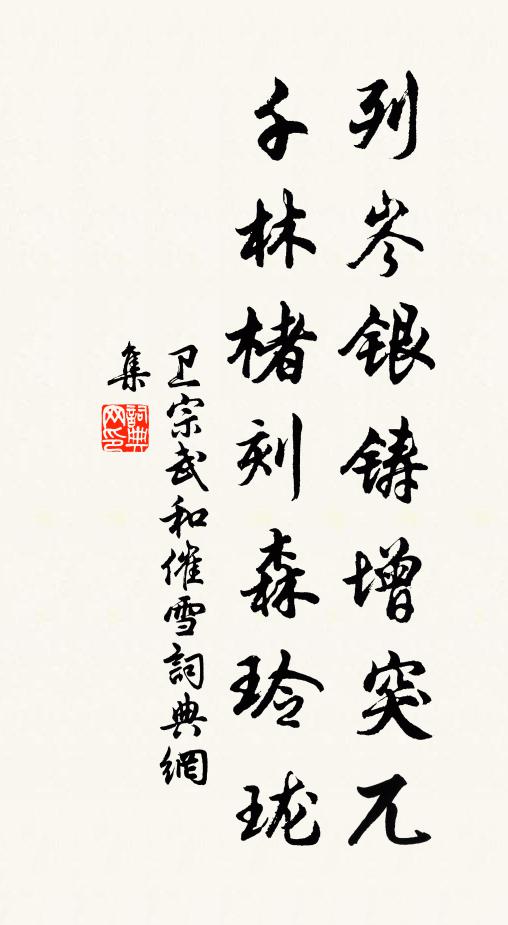 列岑银铸增突兀
千林楮刻森玲珑
卫宗武和催雪詞典網
集
詞典网印